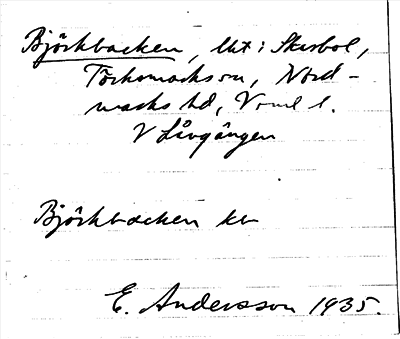 Björkbacken, lht: Skarbol,
Töcksmarks sn, Nord-
marks hd, Vrml l.
V Låvgången
Björkbacken kb
E. Andersson 1935.